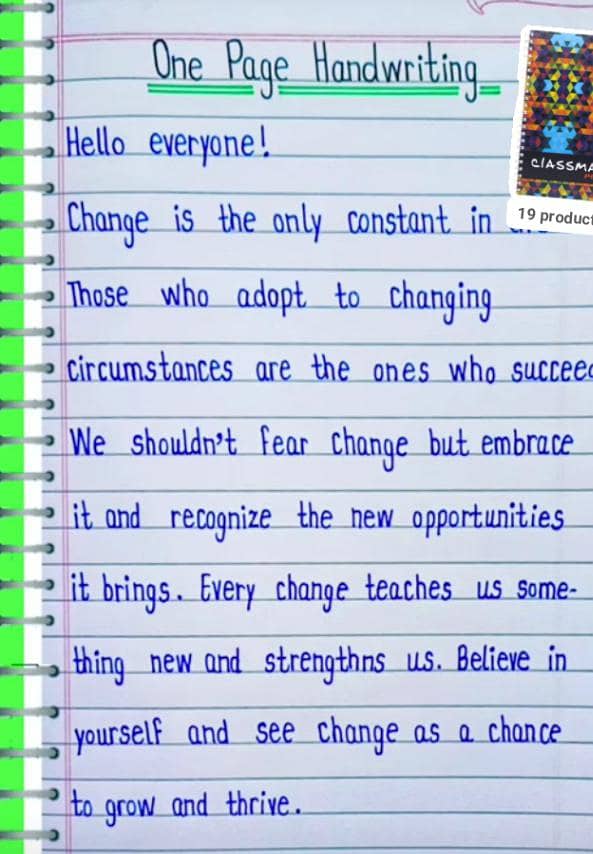 One Page Handwriting
Hello everyone!
Change is the only constant in
Those who adopt to changing
circumstances are the ones who succeed
We shouldn't fear change but embrace
it and recognize the new opportunities
it brings. Every change teaches us some-
thing new and strengthns us. Believe in
yourself and see change as a chance
to grow and thrive.
CLASSMA
19 product